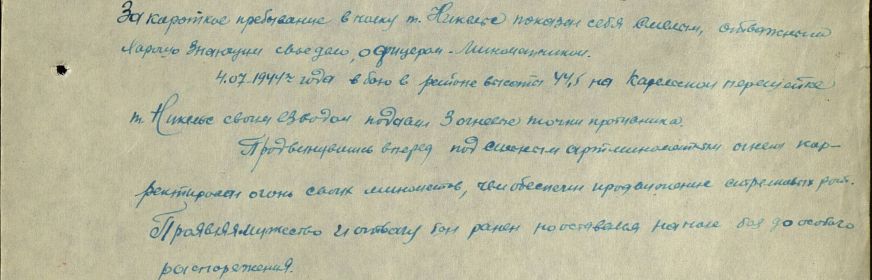 За короткое пребывание в полку т. Никельс показал себя смелым, отважным
Хорошо знающим свое дело, офицером-минометчиком.
4.07.1944 г года в бою в районе высоты 44,5 на Карельском перешейке
т. Никельс своим взводом подавил 3 огневые точки противника.
Продвинувшись вперед под сильным артминометным огнем кор-
ректировал огонь своих минометов, чем обеспечил продвижение стрелковых рот.
Проявляя мужество и отвагу был ранен но оставался на поле боя до особого
распоряжения.